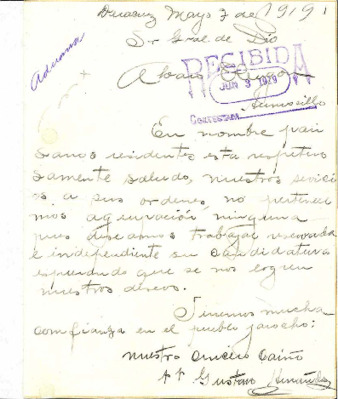 Veracruz Mayo 7 de 1919.
Sr Gral de Div
Alvaro Obregon
Aduana
RECIBIDA
JUN 3 1919
CONTESTADA
Hermosillo
En nombre pai
sanos residentes esta respetuo
samente saludo, nuestros servici
os a sus ordenes, no pertenec
mos agrupación ninguna
pues deseamos trabajar
e independiente su candidatura
esperando que se nos logren
nuestros deseos.
Tenemos mucha
confianza en el pueblo jarocho:
nuestro sincero cariño
At Gustavo Hernández